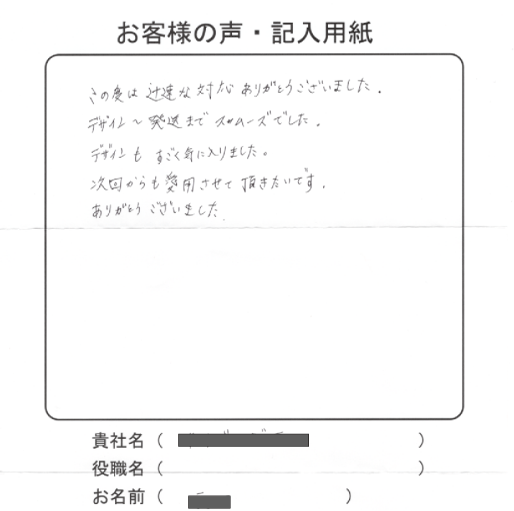 お客様の声・記入用紙
この度は迅速な対応ありがとうございました。
デザイン～発送までスムーズでした。
デザインもすごく気に入りました。
次回からも愛用させて頂きたいです。
ありがとうございました
貴社名（　　　）
役職名（　　　）
お名前（　　　）